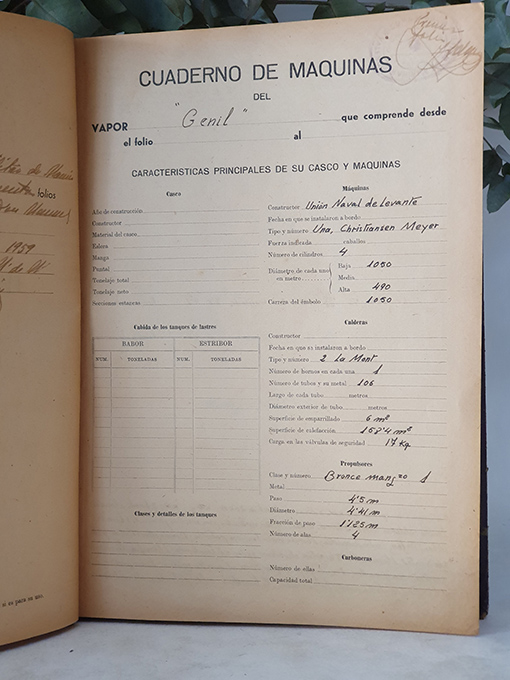 folios
1959
si se para en uno.
CUADERNO DE MAQUINAS
DEL
VAPOR "Genil" que comprende desde
el folio al
CARACTERISTICAS PRINCIPALES DE SU CASCO Y MAQUINAS
Casco
Año de construcción
Constructor
Material del casco
Eslora
Manga
Puntal
Tonelaje total
Tonelaje neto
Secciones estancas
Cabida de los tanques de lastres
BABOR ESTRIBOR
NUM. TONELADAS NUM. TONELADAS
Clases y detalles de los tanques
Máquinas
Constructor Unión Naval de Levante
Fecha en que se instalaron a bordo
Tipo y número Una, Christiansen Meyer
Fuerza indicada caballos
Número de cilindros 4
Diámetro de cada uno en metro
Baja 1050
Media
Alta 490
Carrera del émbolo 1050
Calderas
Constructor
Fecha en que se instalaron a bordo
Tipo y número 2 La Mont
Número de hornos en cada una 1
Número de tubos y su metal 106
Largo de cada tubo metros
Diámetro exterior de tubo metros
Superficie de emparrillado 6 m²
Superficie de calefacción 158'4 m²
Carga en las válvulas de seguridad 17 Kg
Propulsores
Clase y número Bronce mang⁠ⁿᵒ 1
Metal
Paso 4'5 m
Diámetro 4'41 m
Fracción de paso 1'125 m
Número de alas 4
Carboneras
Número de ellas
Capacidad total